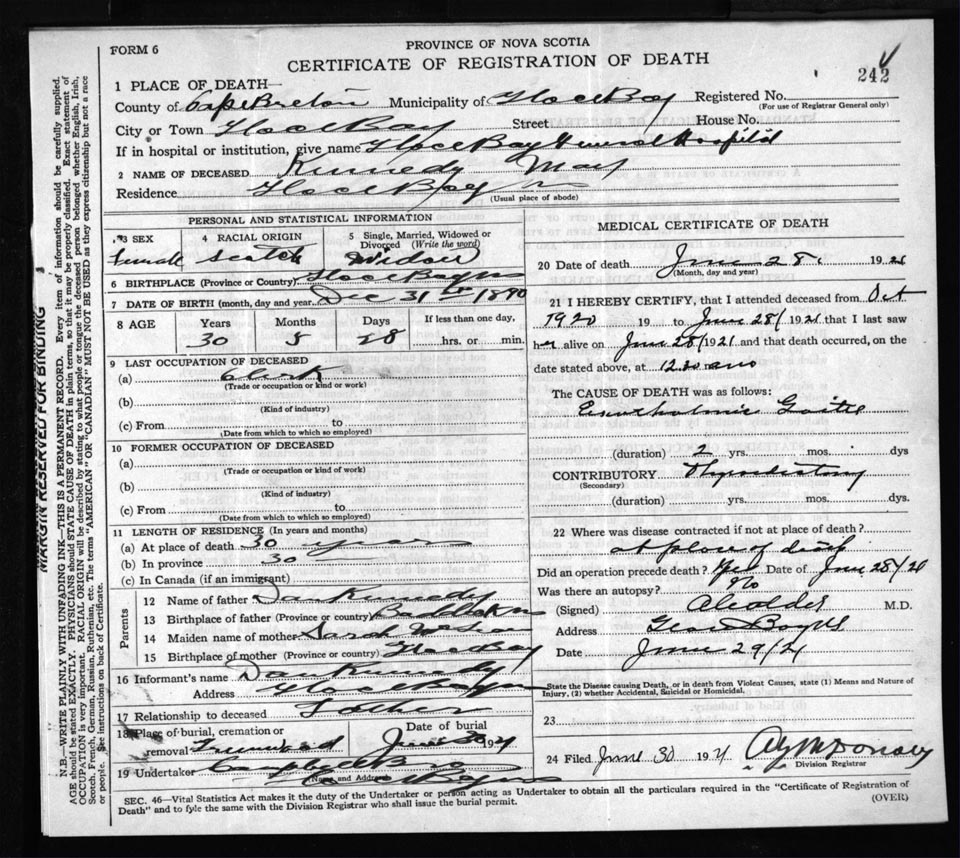 FORM 6
PROVINCE OF NOVA SCOTIA
CERTIFICATE OF REGISTRATION OF DEATH
242
1 PLACE OF DEATH—
County of Cape Breton Municipality of Glace Bay Registered No.
(For use of Registrar General only)
City or Town Glace Bay Street House No.
If in hospital or institution, give name Glace Bay General Hospital
2 NAME OF DECEASED Kennedy Mary
Residence Glace Bay
(Usual place of abode)
PERSONAL AND STATISTICAL INFORMATION
3 SEX 4 RACIAL ORIGIN 5 Single, Married, Widowed or Divorced (Write the word)
Female Scotch Widow
6 BIRTHPLACE (Province or Country) Glace Bay NS
7 DATE OF BIRTH (month, day and year) Dec 31st 1890
8 AGE Years Months Days If less than one day,
30 5 28 hrs. or min.
9 LAST OCCUPATION OF DECEASED
(a) Clerk
(Trade or occupation or kind or work)
(b)
(Kind of industry)
(c) From to
(Date from which to which so employed)
10 FORMER OCCUPATION OF DECEASED
(a)
(Trade or occupation or kind of work)
(b)
(Kind of industry)
(c) From to
(Date from which to which so employed)
11 LENGTH OF RESIDENCE (In years and months)
(a) At place of death 30 years
(b) In province 30
(c) In Canada (if an immigrant)
Parents
12 Name of father Dan Kennedy
13 Birthplace of father (Province or country) Baddeck NS
14 Maiden name of mother Sarah
15 Birthplace of mother (Province or country) Glace Bay
16 Informant's name Dan Kennedy
Address Glace Bay NS
17 Relationship to deceased Father
18 Place of burial, cremation or removal Date of burial
Greenwood June 30 1921
19 Undertaker Campbell
(Name and Address)
MEDICAL CERTIFICATE OF DEATH
20 Date of death June 28 1921
(Month, day and year)
21 I HEREBY CERTIFY, that I attended deceased from Oct
1920 19 to June 28/ 1921 that I last saw
her alive on June 28/1921 and that death occurred, on the
date stated above, at 12.30
The CAUSE OF DEATH was as follows:
Exophthalmic Goitre
(duration) 2 yrs. mos. dys
CONTRIBUTORY Thyroidectomy
(Secondary)
(duration) yrs. mos. dys.
22 Where was disease contracted if not at place of death?
at place of death
Did an operation precede death? Yes Date of June 28/21
Was there an autopsy? No
(Signed) M.D.
Address Glace Bay NS
Date June 29/21
State the Disease causing Death, or in death from Violent Causes, state (1) Means and Nature of Injury, (2) whether Accidental, Suicidal or Homicidal.
23
24 Filed June 30 1921
Division Registrar
SEC. 46—Vital Statistics Act makes it the duty of the Undertaker or person acting as Undertaker to obtain all the particulars required in the "Certificate of Registration of
Death" and to fyle the same with the Division Registrar who shall issue the burial permit.
(OVER)
MARGIN RESERVED FOR BINDING
N.B.—WRITE PLAINLY WITH UNFADING INK—THIS IS A PERMANENT RECORD. Every item of information should be carefully supplied.
AGE should be stated EXACTLY. PHYSICIANS should STATE CAUSE OF DEATH in plain terms, so that it may be properly classified. Exact statement of
OCCUPATION is very important. RACIAL ORIGIN will be described by stating to what people or tongue the deceased person belonged whether English, Irish,
Scotch, French, German, Russian, Ruthenian, etc. The terms "AMERICAN" OR "CANADIAN" MUST NOT BE USED as they express citizenship but not a race
or people. See instructions on back of Certificate.